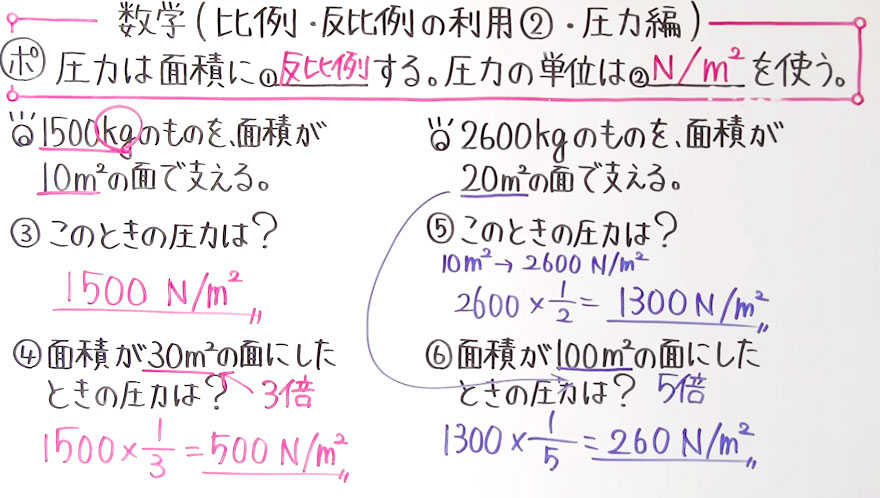 数学(比例・反比例の利用②・圧力編)
ポ 圧力は面積に①反比例する。圧力の単位は②N/m²を使う。
1500kgのものを、面積が
10m²の面で支える。
③このときの圧力は?
1500 N/m²
④面積が30m²の面にした
ときの圧力は? 3倍
1500×1/3=500 N/m²
2600kgのものを、面積が
20m²の面で支える。
⑤このときの圧力は?
10m²→2600 N/m²
2600×1/2=1300N/m²
⑥面積が100m²の面にした
ときの圧力は? 5倍
1300×1/5=260N/m²